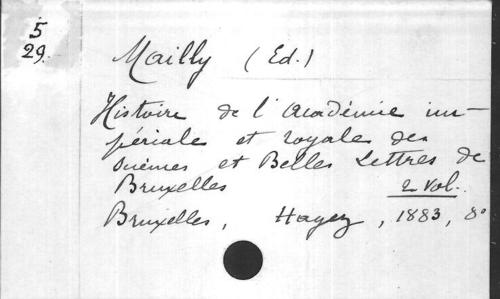 5
29.
Mailly (Ed.)
Histoire de l'Académie im-
périale et royale des
Sciences et Belles Lettres de
Bruxelles 2 vol.
Bruxelles, Hayez, 1883, 8°